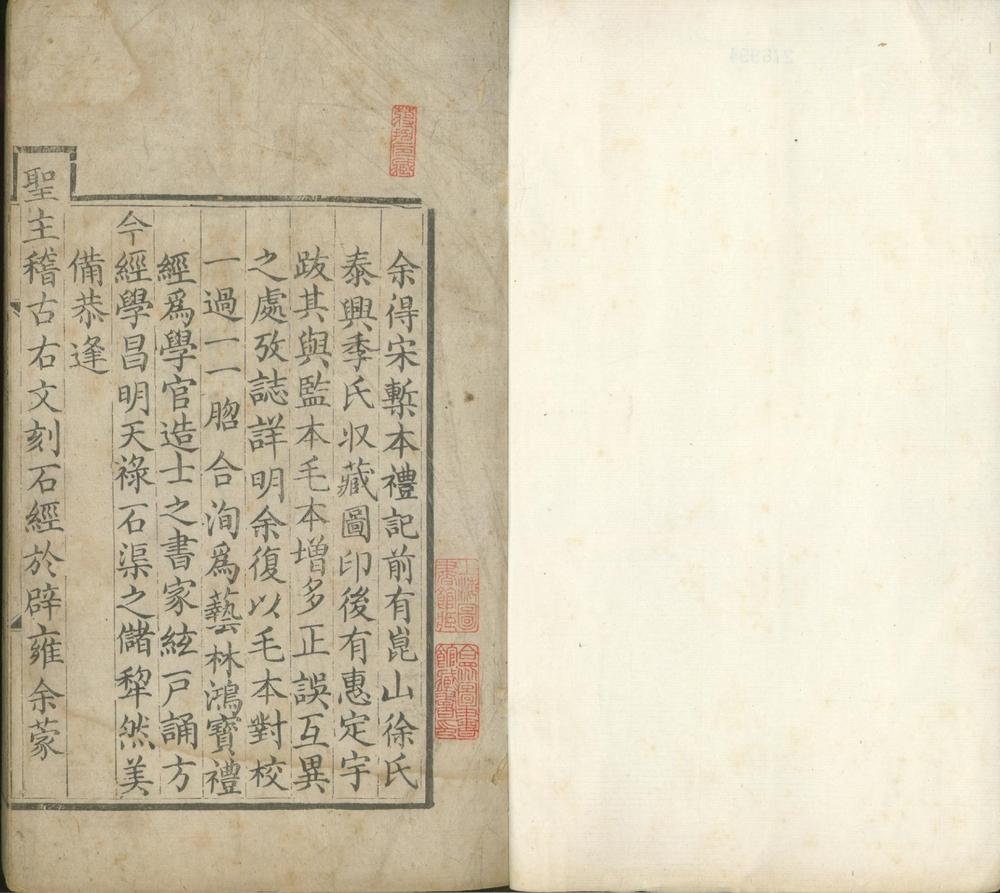 余得宋槧本禮記前有崑山徐氏
泰興季氏収藏圖印後有惠定宇
跋其與監本毛本增多正誤互異
之處攷誌詳明余復以毛本對校
一過一一脗合洵爲藝林鴻寶禮
經爲學官造士之書家絃戶誦方
今經學昌明天祿石渠之儲犂然美
備恭逢
聖主稽古右文刻石經於辟雍余蒙
上海圖書館藏
合眾圖書館藏書印